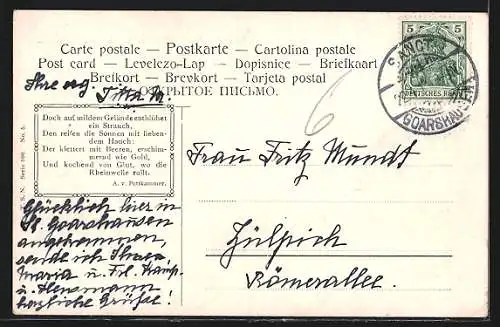 Carte postale — Postkarte — Cartolina postale
Post card — Levelezo-Lap — Dopisnice — Briefkaart
Brefkort — Brevkort — Tarjeta postal
ОТКРЫТОЕ ПИСЬМО.
5 5
DEUTSCHES REICH
SANCT
GOARSHAUSEN
Ihre erg.
Doch auf mildem Gelände entblühet
ein Strauch,
Den reifen die Sonnen mit lieben-
dem Hauch:
Der klettert mit Beeren, erschim-
mernd wie Gold,
Und kochend von Glut, wo die
Rheinwelle rollt.
A. v. Puttkammer.
S. N. Serie No. 5.
6
Frau Fritz Mundt
Zülpich
Römerallee.
Glücklich hier in
St. Goarshausen
angekommen,
sende ich Ihnen,
Maria u. Frl.
u.
herzliche Grüße!